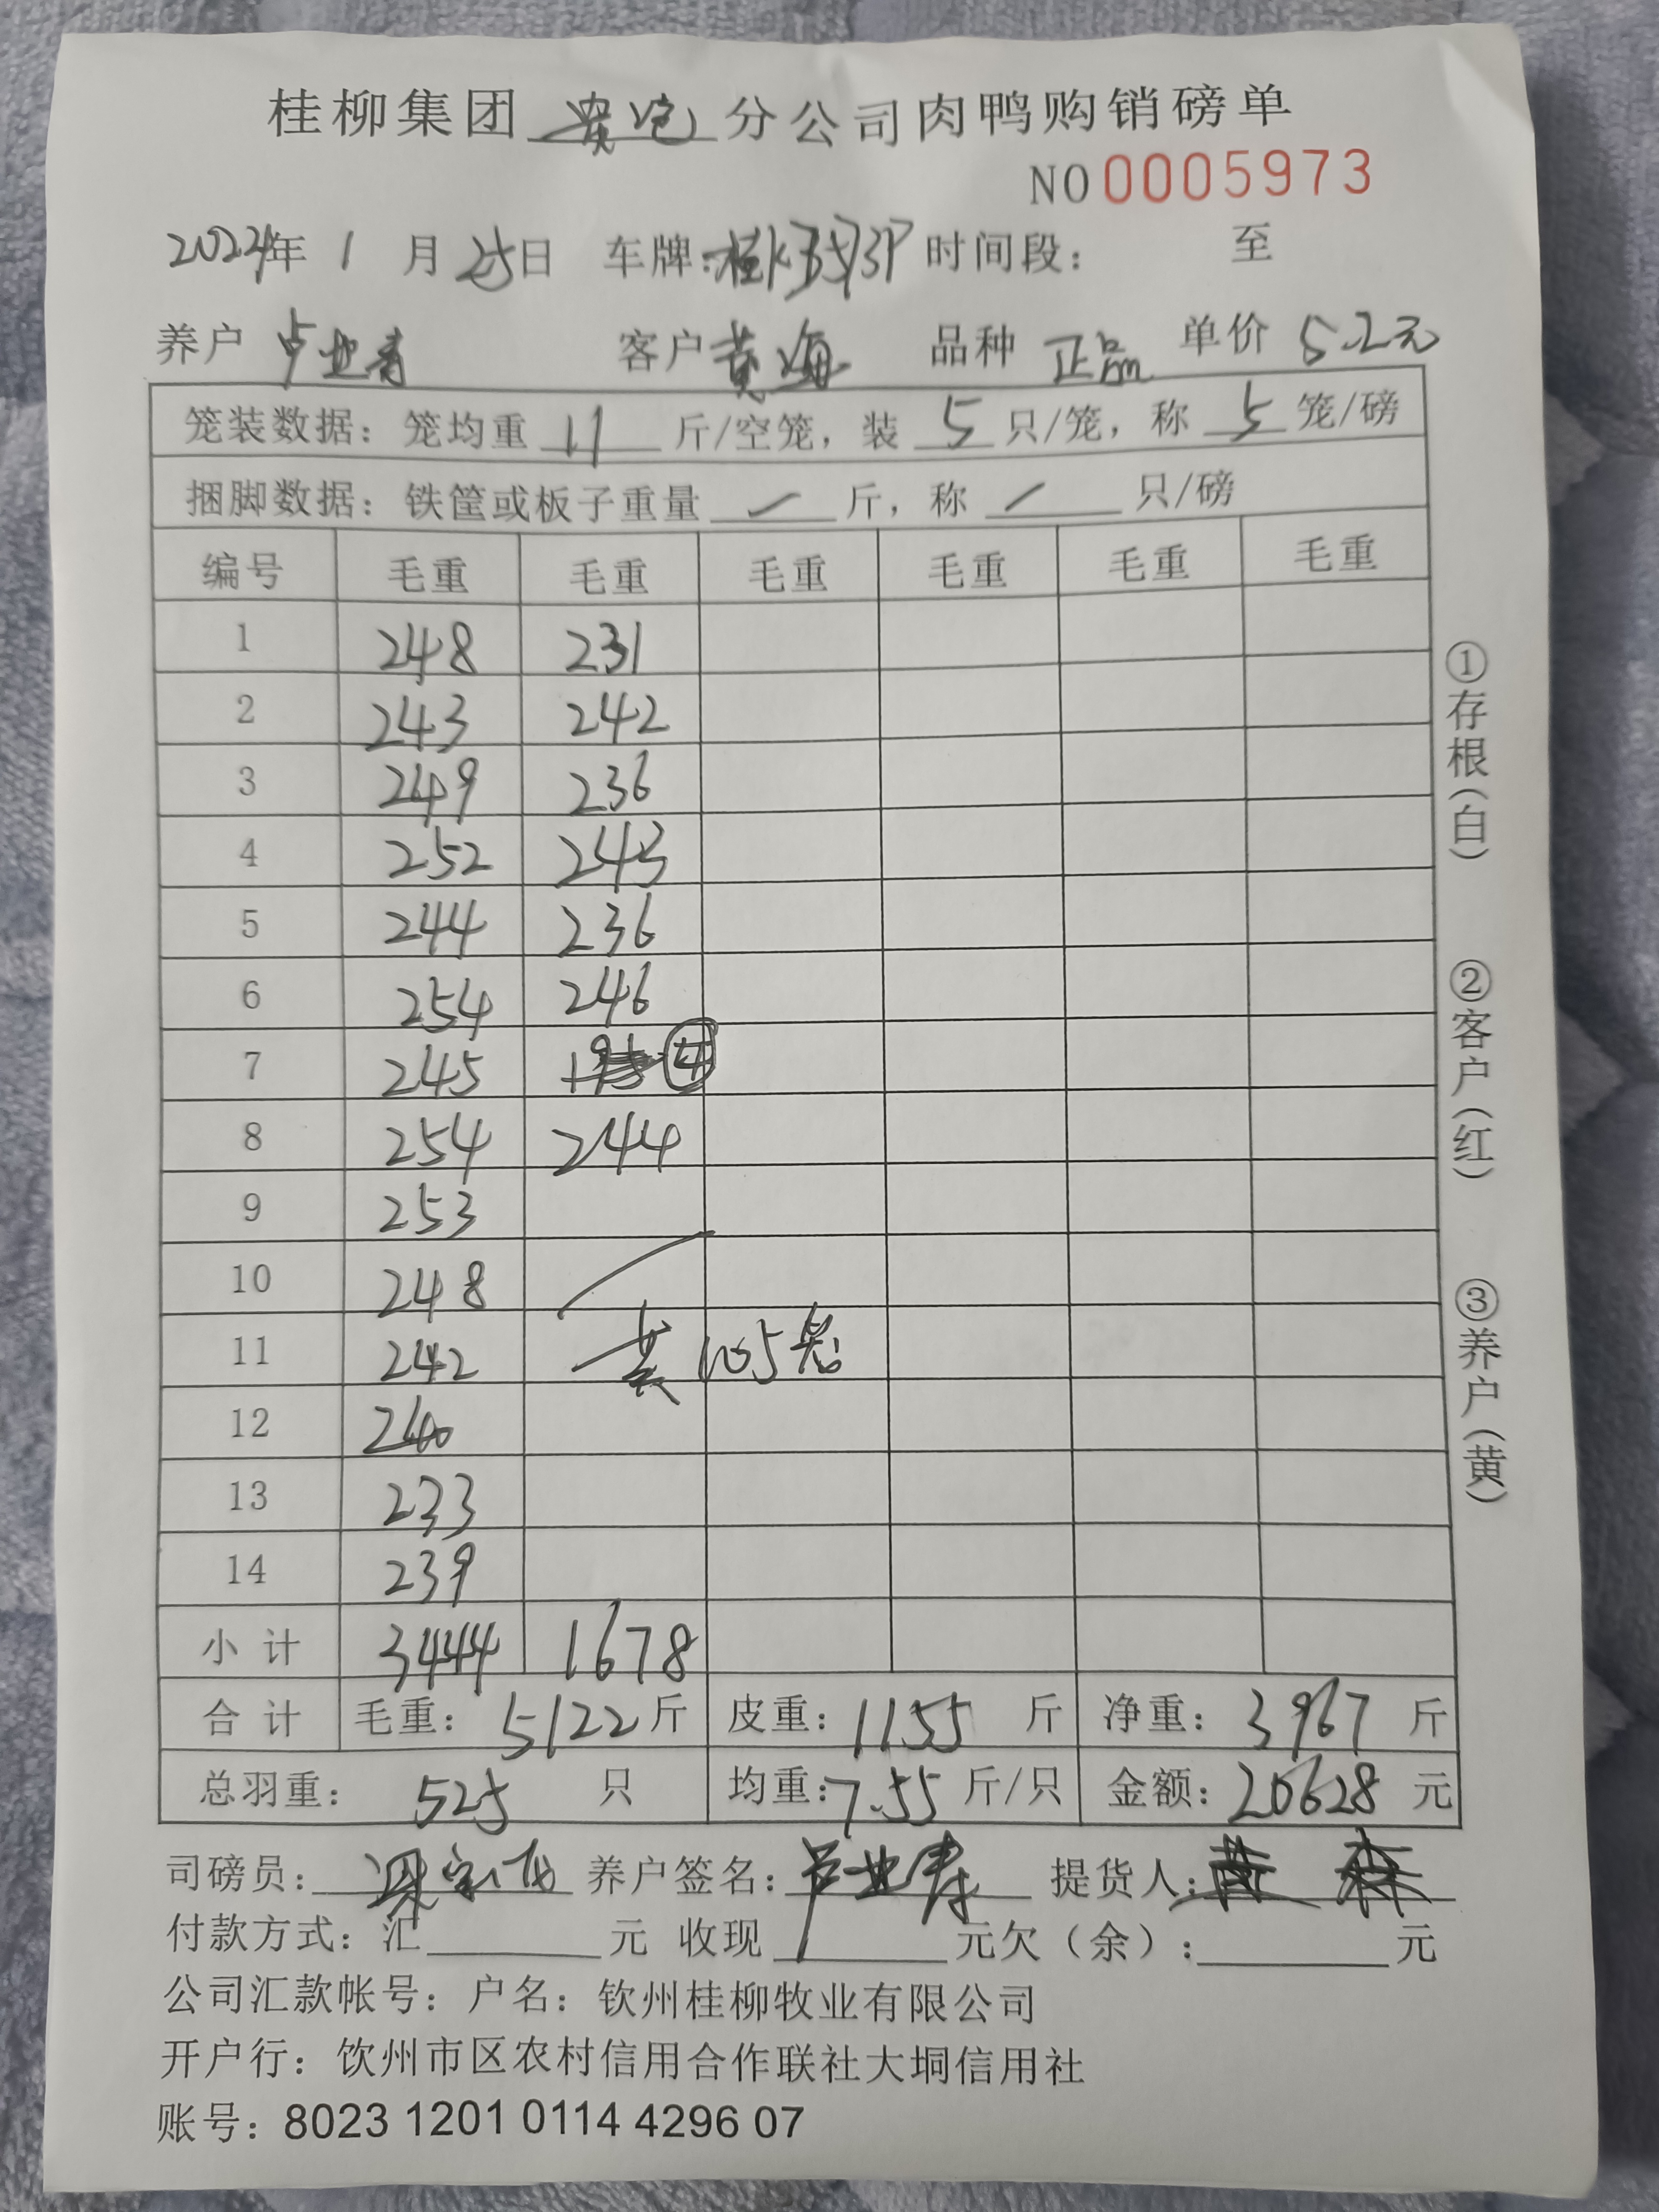 桂柳集团 分公司肉鸭购销磅单
NO 0005973
2024年 1 月 25日 车牌: 时间段: 至
养户 客户 黄海 品种 正品 单价 5.2元
笼装数据: 笼均重 11 斤/空笼, 装 5 只/笼, 称 5 笼/磅
捆脚数据: 铁筐或板子重量 / 斤, 称 / 只/磅
编号 毛重 毛重 毛重 毛重 毛重 毛重
1 248 231
2 243 242
3 249 236
4 252 243
5 244 236
6 254 246
7 245 ④
8 254 244
9 253
10 248
11 242 共 105笼
12 240
13 233
14 239
小 计 3444 1678
合 计 毛重: 5122 斤 皮重: 1155 斤 净重: 3967 斤
总羽重: 525 只 均重: 7.55 斤/只 金额: 20628 元
司磅员: 养户签名: 提货人:
付款方式: 汇 元 收现 元欠(余): 元
公司汇款帐号: 户名: 钦州桂柳牧业有限公司
开户行: 钦州市区农村信用合作联社大垌信用社
账号: 8023 1201 0114 4296 07
①存根(白)
②客户(红)
③养户(黄)